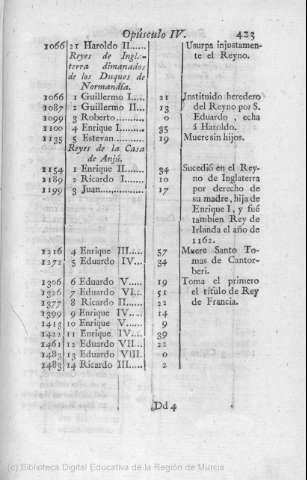 Opúsculo IV. 423
1066 21 Haroldo II...... Usurpa injustamente el Reyno.
Reyes de Inglaterra
dimanados
de los Duques de
Normandía.
1066 1 Guillermo I..... 21 Instituido heredero
1087 2 Guillermo II.... 13 del Reyno por S.
1099 3 Roberto.......... 0 Eduardo, echa
1100 4 Enrique I......... 35 á Haroldo.
1135 5 Estevan........... 19 Muere sin hijos.
Reyes de la Casa
de Anjú.
1154 1 Enrique II........ 34 Sucedió en el Rey-
1189 2 Ricardo I......... 10 no de Inglaterra
1199 3 Juan............... 17 por derecho de
su madre, hija de
Enrique I, y fué
tambien Rey de
Irlanda el año de
1162.
1216 4 Enrique III..... 57 Muere Santo To-
1272 5 Eduardo IV.... 34 mas de Cantor-
beri.
1306 6 Eduardo V...... 19 Toma el primero
1326 7 Eduardo VI.... 51 el título de Rey
1377 8 Ricardo II....... 22 de Francia.
1399 9 Enrique IV..... 14
1413 10 Enrique V....... 9
1422 11 Enrique IV..... 39
1461 12 Eduardo VII... 22
1483 13 Eduardo VIII. 0
1483 14 Ricardo III..... 2
Dd 4
(c) Biblioteca Digital Educativa de la Región de Murcia